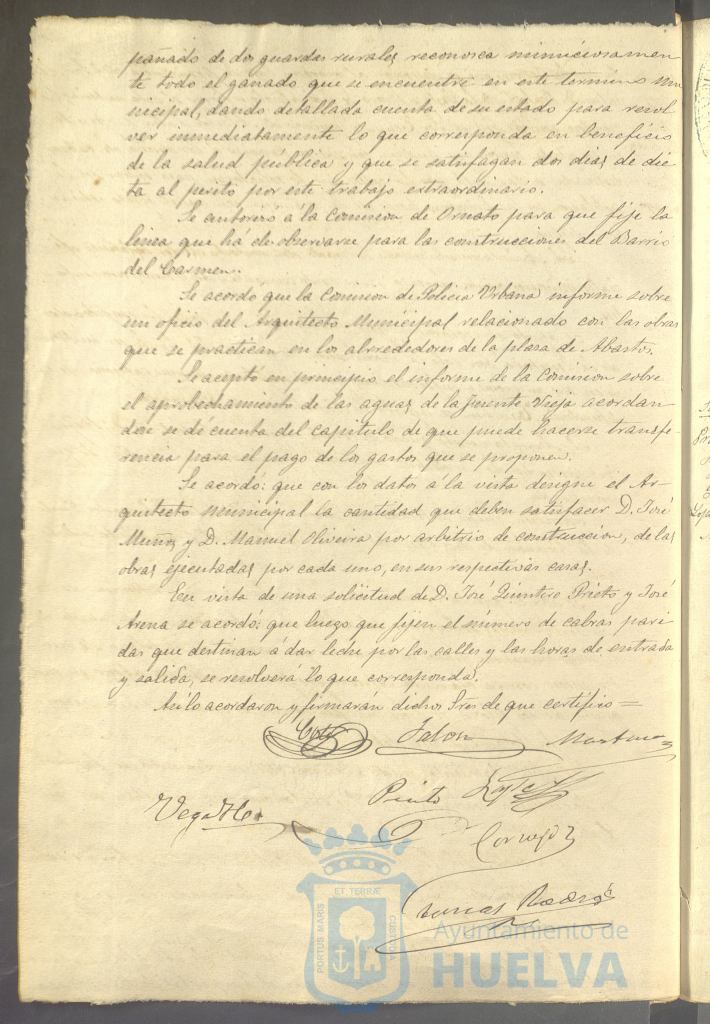 pañado de dos guardas rurales reconosca minuciosamen
te todo el ganado que se encuentre en este termino mu
nicipal, dando detallada cuenta de su estado para resol
ver inmediatamente lo que corresponda en beneficio
de la salud pública y que se satisfagan dos dias de die
ta al perito por este trabajo extraordinario.
Se autorizó á la Comision de Ornato para que fije la
linea que há de observarse para las construcciones del Barrio
del Carmen.
Se acordó que la Comision de Policia Urbana informe sobre
un oficio del Arquitecto Municipal relacionado con las obras
que se practican en los alrrededores de la plasa de Abastos.
Se aceptó en principio el informe de la Comision sobre
el aprobechamiento de las aguas de la fuente Vieja acordan
dose se de cuenta del capitulo de que puede hacerse transfe-
rencia para el pago de los gastos que se proponen.
Se acordó: que con los datos á la vista designe el Ar-
quitecto Municipal la cantidad que deben satisfacer D. José
Muñoz y D. Manuel Oliveira por arbitrio de construccion, de las
obras ejecutadas por cada uno, en sus respectivas casas.
En vista de una solicitud de D. José Quintero Prieto y José
Arena se acordó: que luego que fijen el número de cabras pari
das que destinan á dar leche por las calles y las horas de entrada
y salida, se resolverá lo que corresponda.
Asi lo acordaron y firmarán dichos Sres de que certifico =
Pinto
Cornejo
ET TERRÆ
PORTUS MARIS
CUSTODIA
Ayuntamiento de
HUELVA